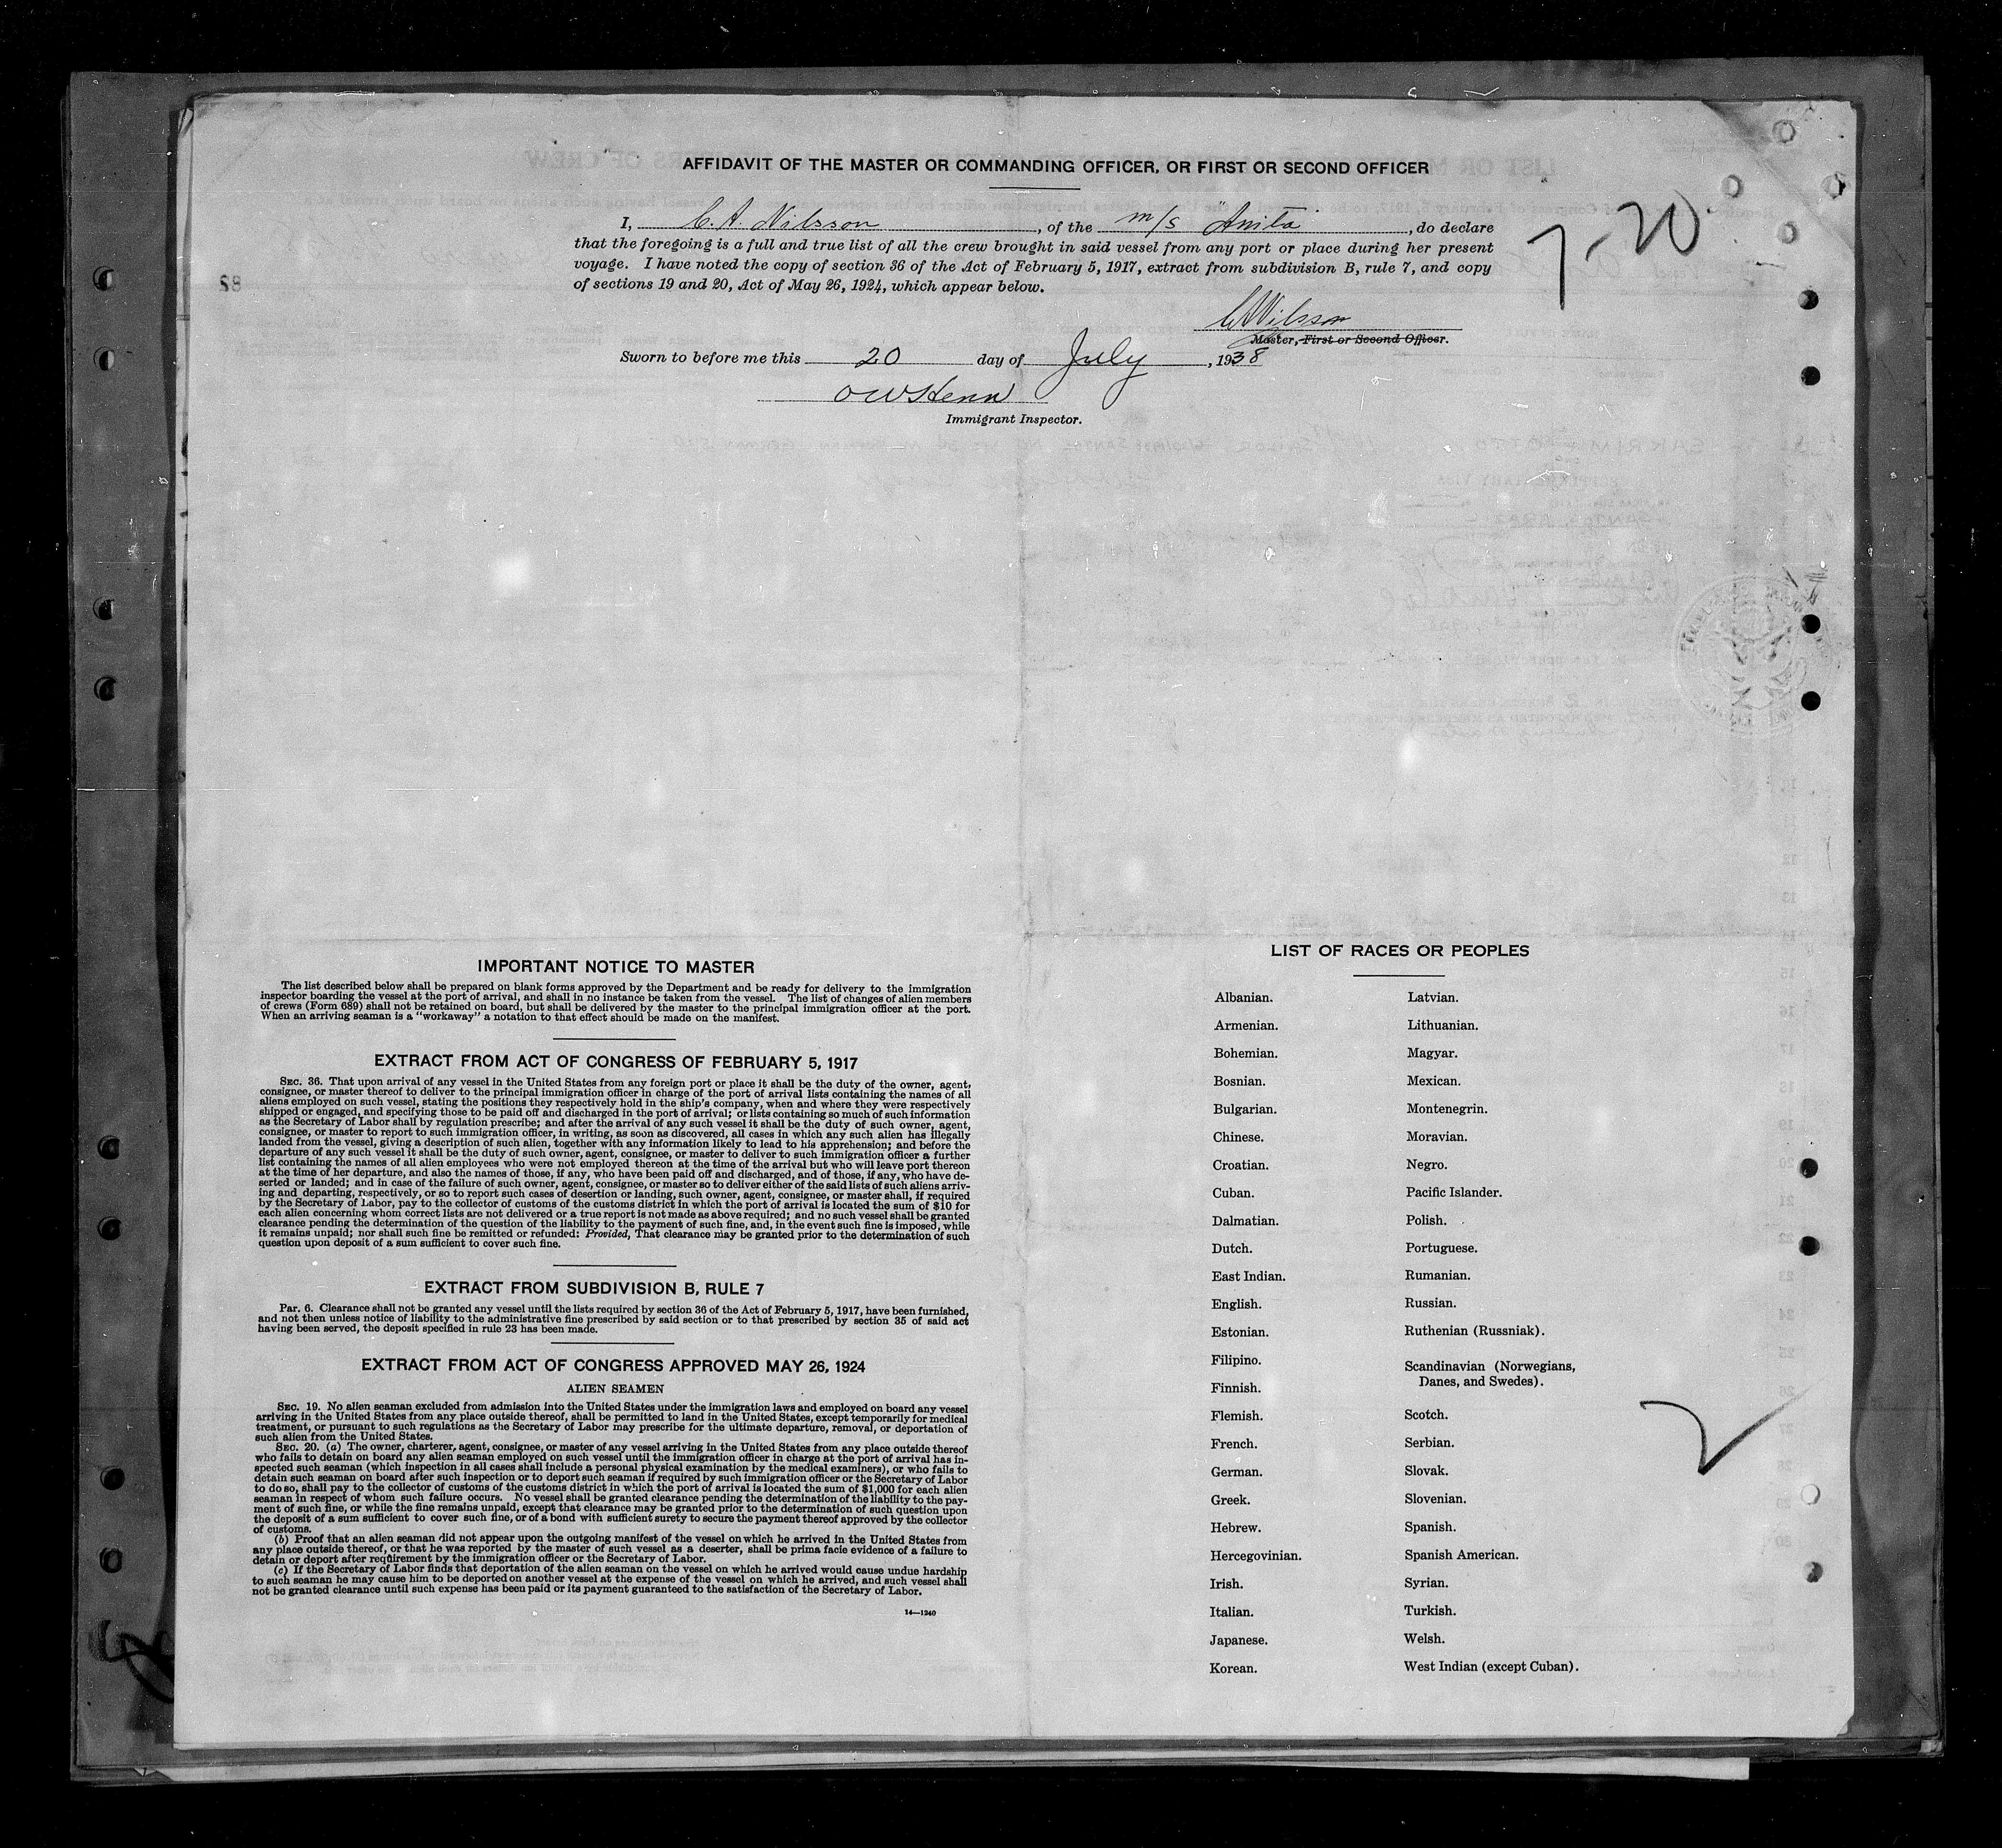 AFFIDAVIT OF THE MASTER OR COMMANDING OFFICER, OR FIRST OR SECOND OFFICER
I, C. A. Nilsson, of the m/s "Anita", do declare
that the foregoing is a full and true list of all the crew brought in said vessel from any port or place during her present
voyage. I have noted the copy of section 36 of the Act of February 5, 1917, extract from subdivision B, rule 7, and copy
of sections 19 and 20, Act of May 26, 1924, which appear below.
7-20
88
CANilsson
Master, First or Second Officer.
Sworn to before me this 20 day of July, 1938
Immigrant Inspector.
IMPORTANT NOTICE TO MASTER
The list described below shall be prepared on blank forms approved by the Department and be ready for delivery to the immigration
inspector boarding the vessel at the port of arrival, and shall in no instance be taken from the vessel. The list of changes of alien members
of crews (Form 689) shall not be retained on board, but shall be delivered by the master to the principal immigration officer at the port.
When an arriving seaman is a "workaway" a notation to that effect should be made on the manifest.
EXTRACT FROM ACT OF CONGRESS OF FEBRUARY 5, 1917
SEC. 36. That upon arrival of any vessel in the United States from any foreign port or place it shall be the duty of the owner, agent,
consignee, or master thereof to deliver to the principal immigration officer in charge of the port of arrival lists containing the names of all
aliens employed on such vessel, stating the positions they respectively hold in the ship's company, when and where they were respectively
shipped or engaged, and specifying those to be paid off and discharged in the port of arrival; or lists containing so much of such information
as the Secretary of Labor shall by regulation prescribe; and after the arrival of any such vessel it shall be the duty of such owner, agent,
consignee, or master to report to such immigration officer, in writing, as soon as discovered, all cases in which any such alien has illegally
landed from the vessel, giving a description of such alien, together with any information likely to lead to his apprehension; and before the
departure of any such vessel it shall be the duty of such owner, agent, consignee, or master to deliver to such immigration officer a further
list containing the names of all alien employees who were not employed thereon at the time of the arrival but who will leave port thereon
at the time of her departure, and also the names of those, if any, who have been paid off and discharged, and of those, if any, who have de-
serted or landed; and in case of the failure of such owner, agent, consignee, or master so to deliver either of the said lists of such aliens arriv-
ing and departing, respectively, or so to report such cases of desertion or landing, such owner, agent, consignee, or master shall, if required
by the Secretary of Labor, pay to the collector of customs of the customs district in which the port of arrival is located the sum of $10 for
each alien concerning whom correct lists are not delivered or a true report is not made as above required; and no such vessel shall be granted
clearance pending the determination of the question of the liability to the payment of such fine, and, in the event such fine is imposed, while
it remains unpaid; nor shall such fine be remitted or refunded: Provided, That clearance may be granted prior to the determination of such
question upon deposit of a sum sufficient to cover such fine.
EXTRACT FROM SUBDIVISION B, RULE 7
Par. 6. Clearance shall not be granted any vessel until the lists required by section 36 of the Act of February 5, 1917, have been furnished,
and not then unless notice of liability to the administrative fine prescribed by said section or to that prescribed by section 35 of said act
having been served, the deposit specified in rule 23 has been made.
EXTRACT FROM ACT OF CONGRESS APPROVED MAY 26, 1924
ALIEN SEAMEN
SEC. 19. No alien seaman excluded from admission into the United States under the immigration laws and employed on board any vessel
arriving in the United States from any place outside thereof, shall be permitted to land in the United States, except temporarily for medical
treatment, or pursuant to such regulations as the Secretary of Labor may prescribe for the ultimate departure, removal, or deportation of
such alien from the United States.
SEC. 20. (a) The owner, charterer, agent, consignee, or master of any vessel arriving in the United States from any place outside thereof
who fails to detain on board any alien seaman employed on such vessel until the immigration officer in charge at the port of arrival has in-
spected such seaman (which inspection in all cases shall include a personal physical examination by the medical examiners), or who fails to
detain such seaman on board after such inspection or to deport such seaman if required by such immigration officer or the Secretary of Labor
to do so, shall pay to the collector of customs of the customs district in which the port of arrival is located the sum of $1,000 for each alien
seaman in respect of whom such failure occurs. No vessel shall be granted clearance pending the determination of the liability to the pay-
ment of such fine, or while the fine remains unpaid, except that clearance may be granted prior to the determination of such question upon
the deposit of a sum sufficient to cover such fine, or of a bond with sufficient surety to secure the payment thereof approved by the collector
of customs.
(b) Proof that an alien seaman did not appear upon the outgoing manifest of the vessel on which he arrived in the United States from
any place outside thereof, or that he was reported by the master of such vessel as a deserter, shall be prima facie evidence of a failure to
detain or deport after requirement by the immigration officer or the Secretary of Labor.
(c) If the Secretary of Labor finds that deportation of the alien seaman on the vessel on which he arrived would cause undue hardship
to such seaman he may cause him to be deported on another vessel at the expense of the vessel on which he arrived, and such vessel shall
not be granted clearance until such expense has been paid or its payment guaranteed to the satisfaction of the Secretary of Labor.
14—1240
LIST OF RACES OR PEOPLES
Albanian.
Armenian.
Bohemian.
Bosnian.
Bulgarian.
Chinese.
Croatian.
Cuban.
Dalmatian.
Dutch.
East Indian.
English.
Estonian.
Filipino.
Finnish.
Flemish.
French.
German.
Greek.
Hebrew.
Hercegovinian.
Irish.
Italian.
Japanese.
Korean.
Latvian.
Lithuanian.
Magyar.
Mexican.
Montenegrin.
Moravian.
Negro.
Pacific Islander.
Polish.
Portuguese.
Rumanian.
Russian.
Ruthenian (Russniak).
Scandinavian (Norwegians,
Danes, and Swedes).
Scotch.
Serbian.
Slovak.
Slovenian.
Spanish.
Spanish American.
Syrian.
Turkish.
Welsh.
West Indian (except Cuban).